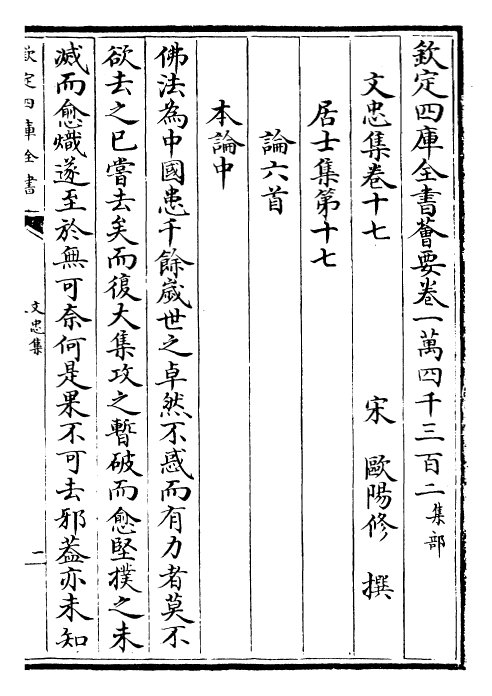 欽定四庫全書薈要卷一萬四千三百二集部
文忠集卷十七
宋 歐陽修 撰
居士集第十七
論六首
本論中
佛法為中國患千餘歲世之卓然不惑而有力者莫不
欲去之已嘗去矣而復大集攻之暫破而愈堅撲之未
滅而愈熾遂至於無可奈何是果不可去邪葢亦未知
欽定四庫全書
文忠集
二